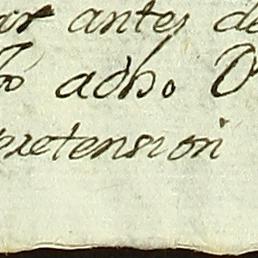 ar antes de
adho. D
pretension